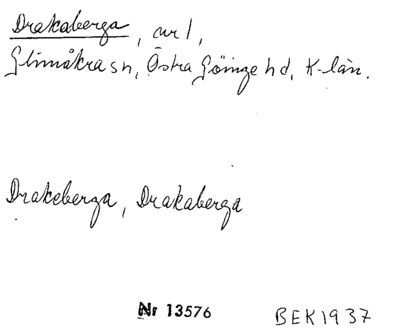 Drakaberga, nr 1,
Glimåkra sn, Östra Göinge hd, K-län.
Drakeberga, Drakaberga
Nr 13576 BEK1937